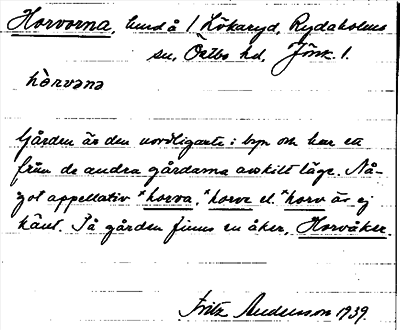 Horvorna, hmd å 1 Lökaryd, Rydaholms
sn, Östbo hd, Jönk. l.
hòrvәnә
Gården är den nordligaste i byn och har ett
från de andra gårdarna avskilt läge. Nå-
got appellativ *horva, *horve el. *horv är ej
känt. På gården finns en åker, Horvåker.
Fritz Andersson 1939.